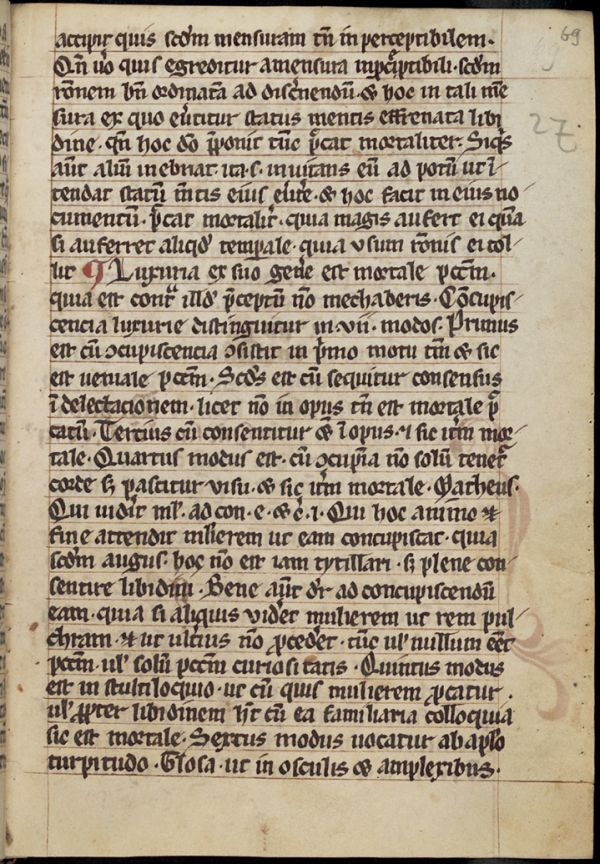 69
27
accipit quis scdm mensuram tn inperceptibilem.
Qn uo quis egreditur amensura inpceptibili. scdm
ronem bn ordinata ad discnendu. & hoc in tali me
sura ex quo eutitur status mentis effrenata libi
dine. qn hoc do pponit tuc pcat mortaliter. Siqs
aut aliu inebriat ita. s. inuitans eu ad potu ut i
tendat statu mtis eius . & hoc facit in eius no
cumentu. pcat mortalit. quia magis aufert ei qua
si auferret aliqd tempale. quia usum ronis ei tol
lit Luxuria ex suo gene est mortale pctm.
quia est cont illd pceptu no mechaberis. Concupis
cencia luxurie distinguitur in. vii. modos. Primus
est cu ɔcupiscencia ɔsistit in pmo motu tm & sic
est ueniale pctm. Scds est cu sequitur consensus
i delectacionem. licet no in opus tn est mortale p
catu. Tercius cu consentitur & i opus. & sic itm mor
tale. Quartus modus est. cu ɔcupia no solu tenet
corde s pascitur uisu. & sic itm mortale. Matheus.
Qui uidit ml. ad con. e. & c. i. Qui hoc animo &
fine attendit mlierem ut eam concupiscat. quia
scdm augus. hoc no est iam tytillari. s plene con
sentire libidini. Bene aut dr ad concupiscendu
eam. quia si aliquis videt mulierem ut rem pul
chram. & ut ultius no pcedet. tuc ul nullum eet
pctm. ul solu pctm curiositatis. Quintus modus
est in stultiloquio. ut cu quis mulierem pcatur.
ul ppter libidinem ht cu ea familiaria colloquia
sic est mortale. Sextus modus uocatur ab aplo
turpitudo. Glosa. ut in osculis & amplexibus.